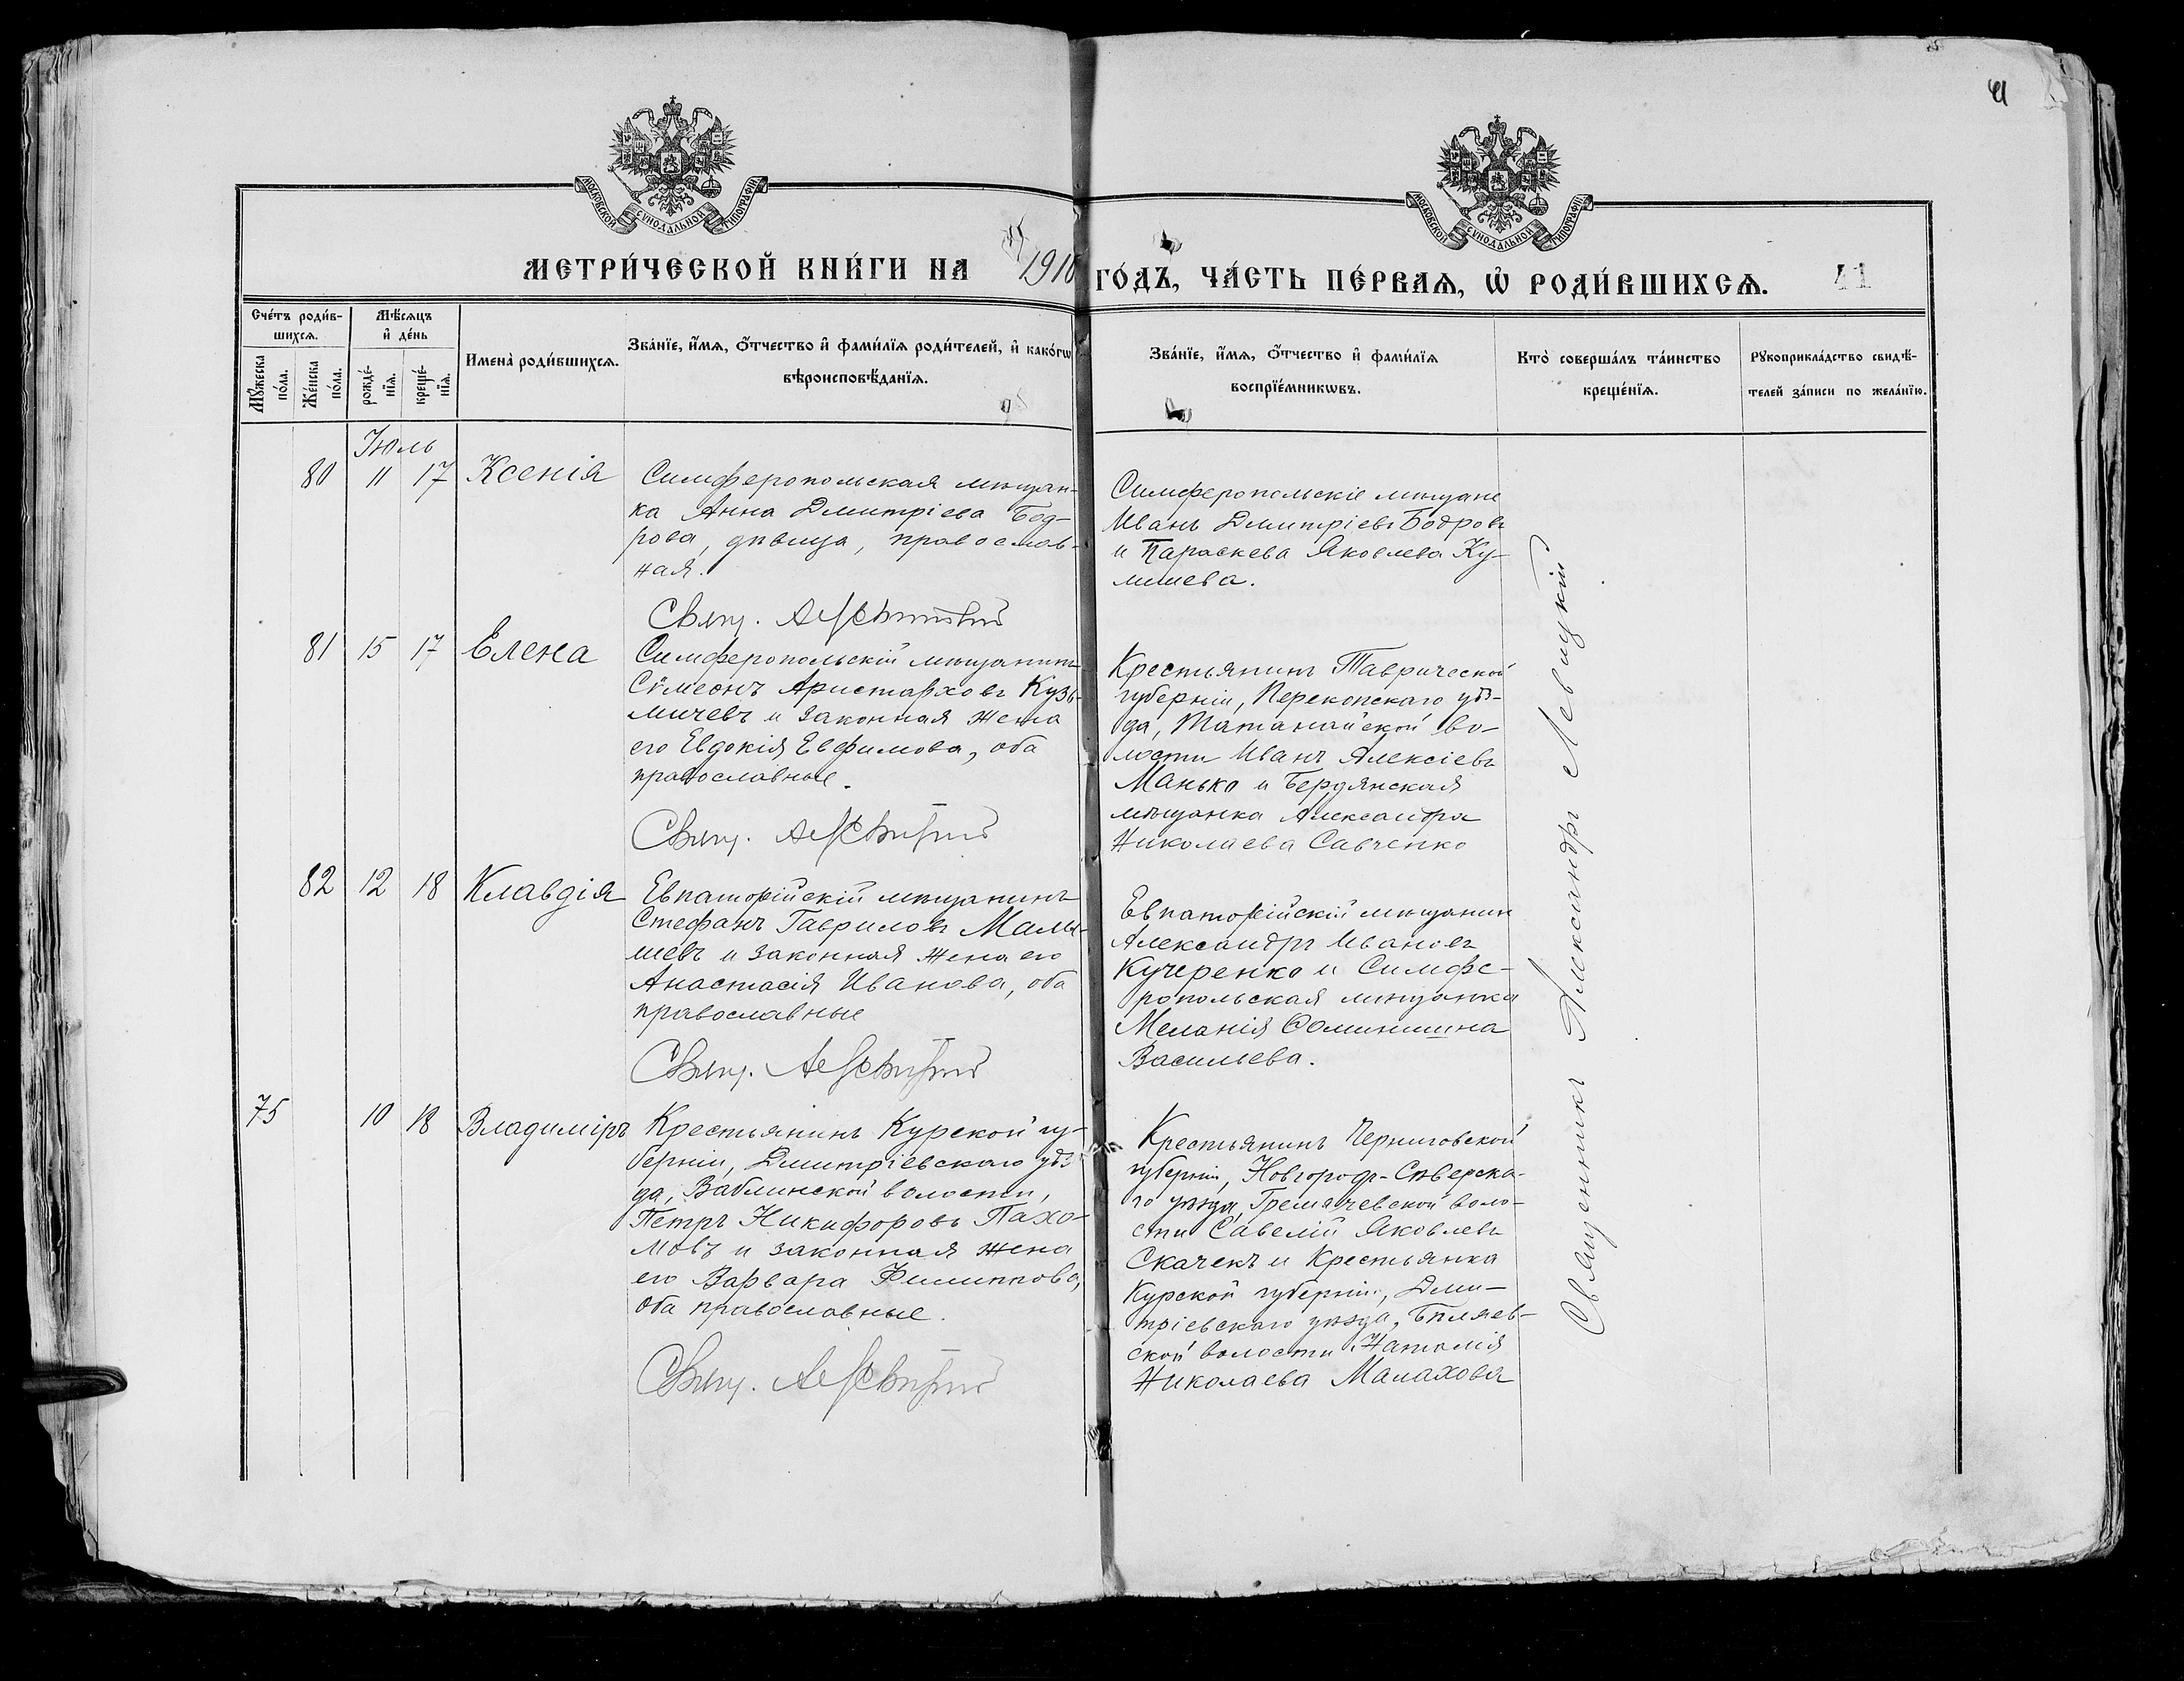 41
МОСКОВСКОЙ СѴНОДАЛЬНОЙ ТИПОГРАФІИ
МОСКОВСКОЙ СѴНОДАЛЬНОЙ ТИПОГРАФІИ
МЕТРИ́ЧЕСКОЙ КНИ́ГИ НА 1910 ГО́ДЪ, ЧА́СТЬ ПЕ́РВАѦ, Ѡ҆ РОДИ́ВШИХСѦ. 41
Сче́тъ роди́в-
шихсѧ.
Мꙋ́жеска
по́ла.
Же́нска
по́ла.
Мѣ́сѧцъ
и҆ де́нь
рожде́-
нїѧ.
креще́-
нїѧ.
Имена̀ роди́вшихсѧ.
Зва́нїе, и҆́мѧ, ѻ҆́тчество и҆ фами́лїѧ роди́телей, и҆ како́гѡ
вѣроисповѣ́данїѧ.
Зва́нїе, и҆́мѧ, ѻ҆́тчество и҆ фами́лїѧ
воспрїе́мникѡвъ.
Кто̀ соверша́лъ та́инство
креще́нїѧ.
Рꙋкоприкла́дство свидѣ́-
телей за́писи по жела́нїю.
Іюль
80 11 17 Ксенія
Симферопольская мѣщан-
ка Анна Димитріева Бод-
рова, дѣвица, православ-
ная.
Свящ. А Левитскій
Симферопольскіе мѣщане
Иванъ Димитріевъ Бодровъ
и Параскева Яковлева Ку-
лишева.
81 15 17 Елена
Симферопольскій мѣщанинъ
Сѵмеонъ Аристарховъ Кузь-
мичевъ и законная жена
его Евдокія Евфимова, оба
православные.
Свящ. А Левитскій
Крестьянинъ Таврической
губерніи, Перекопскаго уѣз-
да, Татанайской во-
лости Иванъ Алексіевъ
Манько и Бердянская
мѣщанка Александра
Николаева Савченко
82 12 18 Клавдія
Евпаторійскій мѣщанинъ
Стефанъ Гавриловъ Малы-
шевъ и законная жена его
Анастасія Иванова, оба
православные
Свящ. А Левитскій
Евпаторійскій мѣщанин
Александръ Ивановъ
Кучеренко и Симфе-
ропольская мѣщанка
Меланія
Васильева.
75 10 18 Владиміръ
Крестьянинъ Курской гу-
берніи, Димитріевскаго уѣз-
да, Ваблинской волости,
Петръ Никифоровъ Пахо-
мовъ и законная жена
его Варвара Филиппова,
оба православные.
Свящ. А Левитскій
Крестьянинъ Черниговской
губерніи, Новгородъ-Сѣверска-
го уѣзда, Гремячевской воло-
сти Савелій Яковлевъ
Скачекъ и Крестьянка
Курской губерніи, Дми-
тріевскаго уѣзда, Бѣляев-
ской волости Наталія
Николаева Малахова
Священникъ Александръ Левицкій